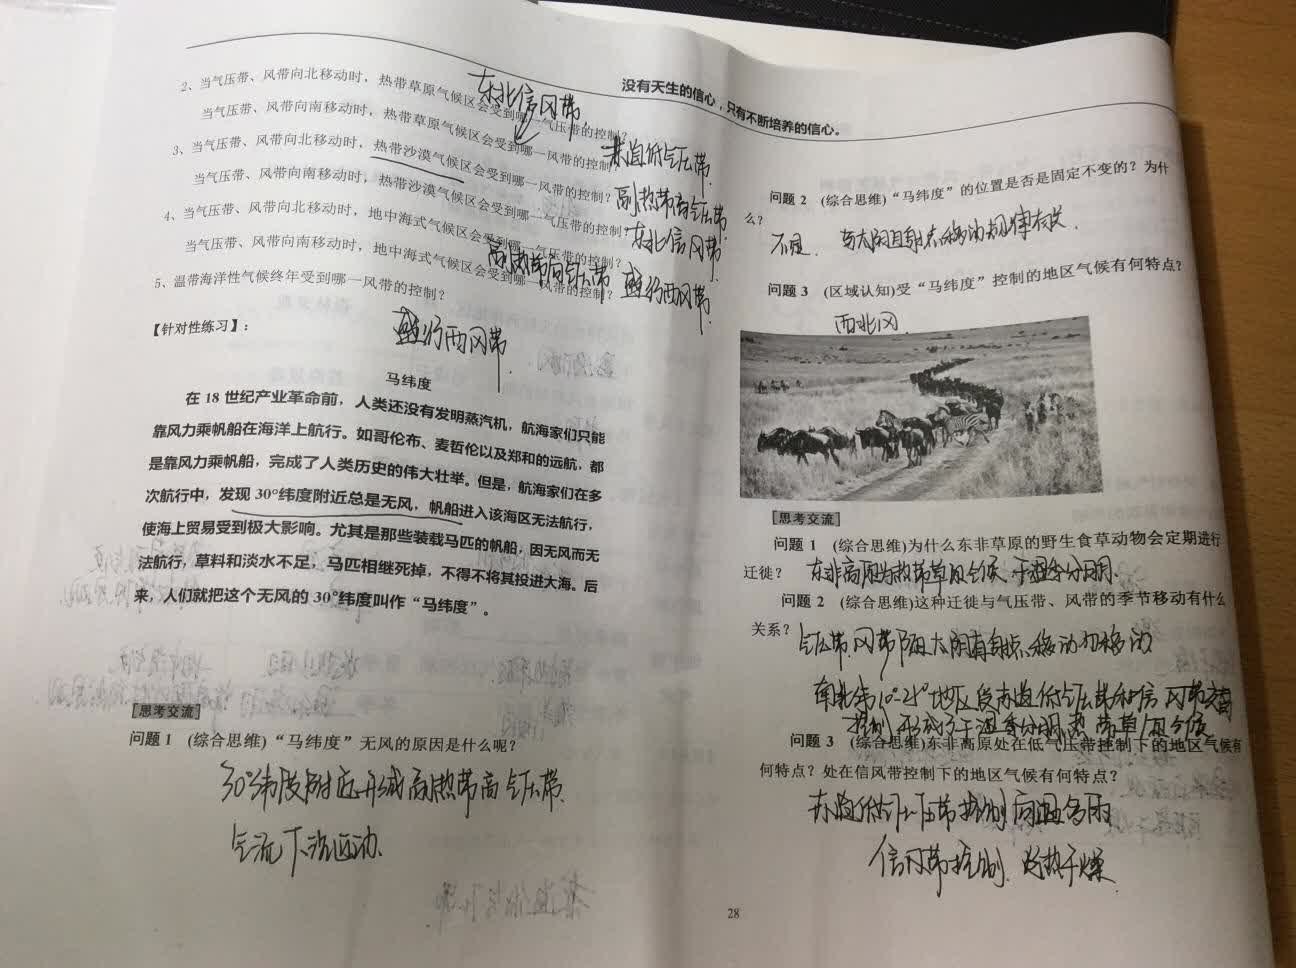 没有天生的信心，只有不断培养的信心。
2、当气压带、风带向北移动时，热带草原气候区会受到哪一气压带的控制？
东北信风带
当气压带、风带向南移动时，热带草原气候区会受到哪一风带的控制？
赤道低气压带
3、当气压带、风带向北移动时，热带沙漠气候区会受到哪一风带的控制？
副热带高气压带
当气压带、风带向南移动时，热带沙漠气候区会受到哪一气压带的控制？
东北信风带
4、当气压带、风带向北移动时，地中海式气候区会受到哪一气压带的控制？
副热带高气压带
当气压带、风带向南移动时，地中海式气候区会受到哪一风带的控制？
盛行西风带
5、温带海洋性气候终年受到哪一风带的控制？
盛行西风带
【针对性练习】：
马纬度
在 18 世纪产业革命前，人类还没有发明蒸汽机，航海家们只能
靠风力乘帆船在海洋上航行。如哥伦布、麦哲伦以及郑和的远航，都
是靠风力乘帆船，完成了人类历史的伟大壮举。但是，航海家们在多
次航行中，发现 30°纬度附近总是无风，帆船进入该海区无法航行，
使海上贸易受到极大影响。尤其是那些装载马匹的帆船，因无风而无
法航行，草料和淡水不足，马匹相继死掉，不得不将其投进大海。后
来，人们就把这个无风的 30°纬度叫作“马纬度”。
[思考交流]
问题 1 (综合思维)“马纬度”无风的原因是什么呢？
30°纬度附近形成副热带高气压带
气流下沉运动
问题 2 (综合思维)“马纬度”的位置是否是固定不变的？为什
么？
不是 与太阳直射点移动规律有关.
问题 3 (区域认知)受“马纬度”控制的地区气候有何特点？
西北风
[思考交流]
问题 1 (综合思维)为什么东非草原的野生食草动物会定期进行
迁徙？ 东非高原为热带草原气候 干湿季分明.
问题 2 (综合思维)这种迁徙与气压带、风带的季节移动有什么
关系？ 气压带.风带随太阳直射点移动而移动
地区受赤道低气压带和信风带交替
控制 形成了干湿季分明热带草原气候
问题 3 (综合思维)东非高原处在低气压带控制下的地区气候有
何特点？处在信风带控制下的地区气候有何特点？
赤道低气压带控制 高温多雨
信风带控制. 炎热干燥
28